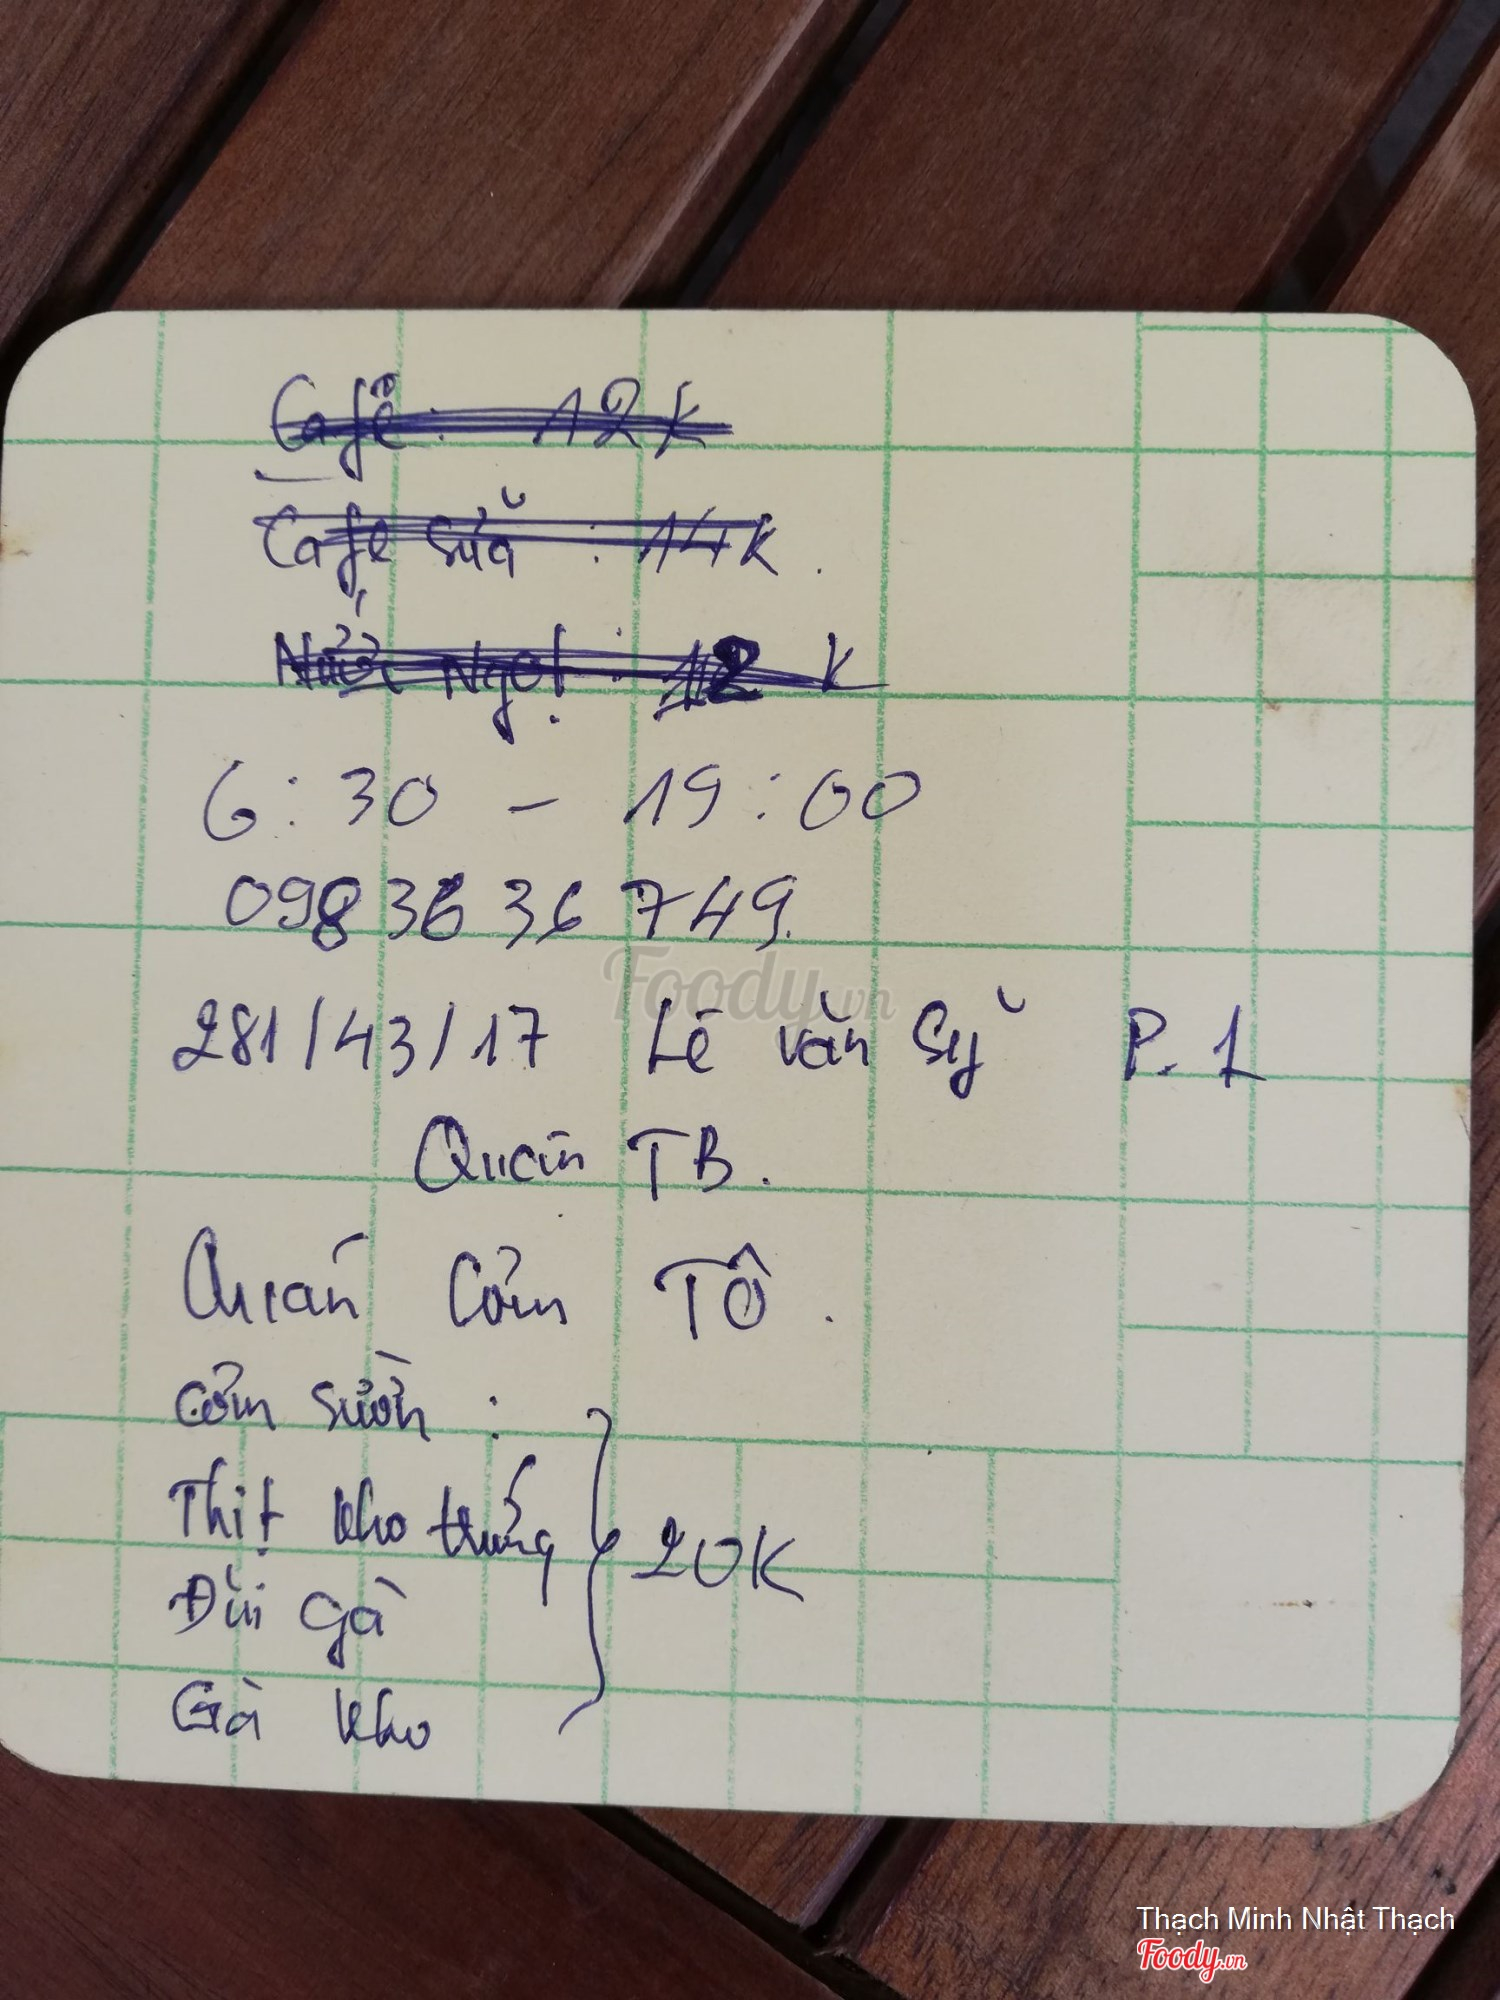 Cafê: 12k
Cafe sữa : 14k.
Nước Ngọt : 12 k
6:30 - 19:00
0983636749.
281/43/17 Lê văn Sỹ P.1
Quận TB.
Quán Cơm TÔ.
Cơm sườn :
Thịt kho trứng
Đùi gà
Gà kho
20K
Foody.vn
Thạch Minh Nhật Thạch
Foody.vn